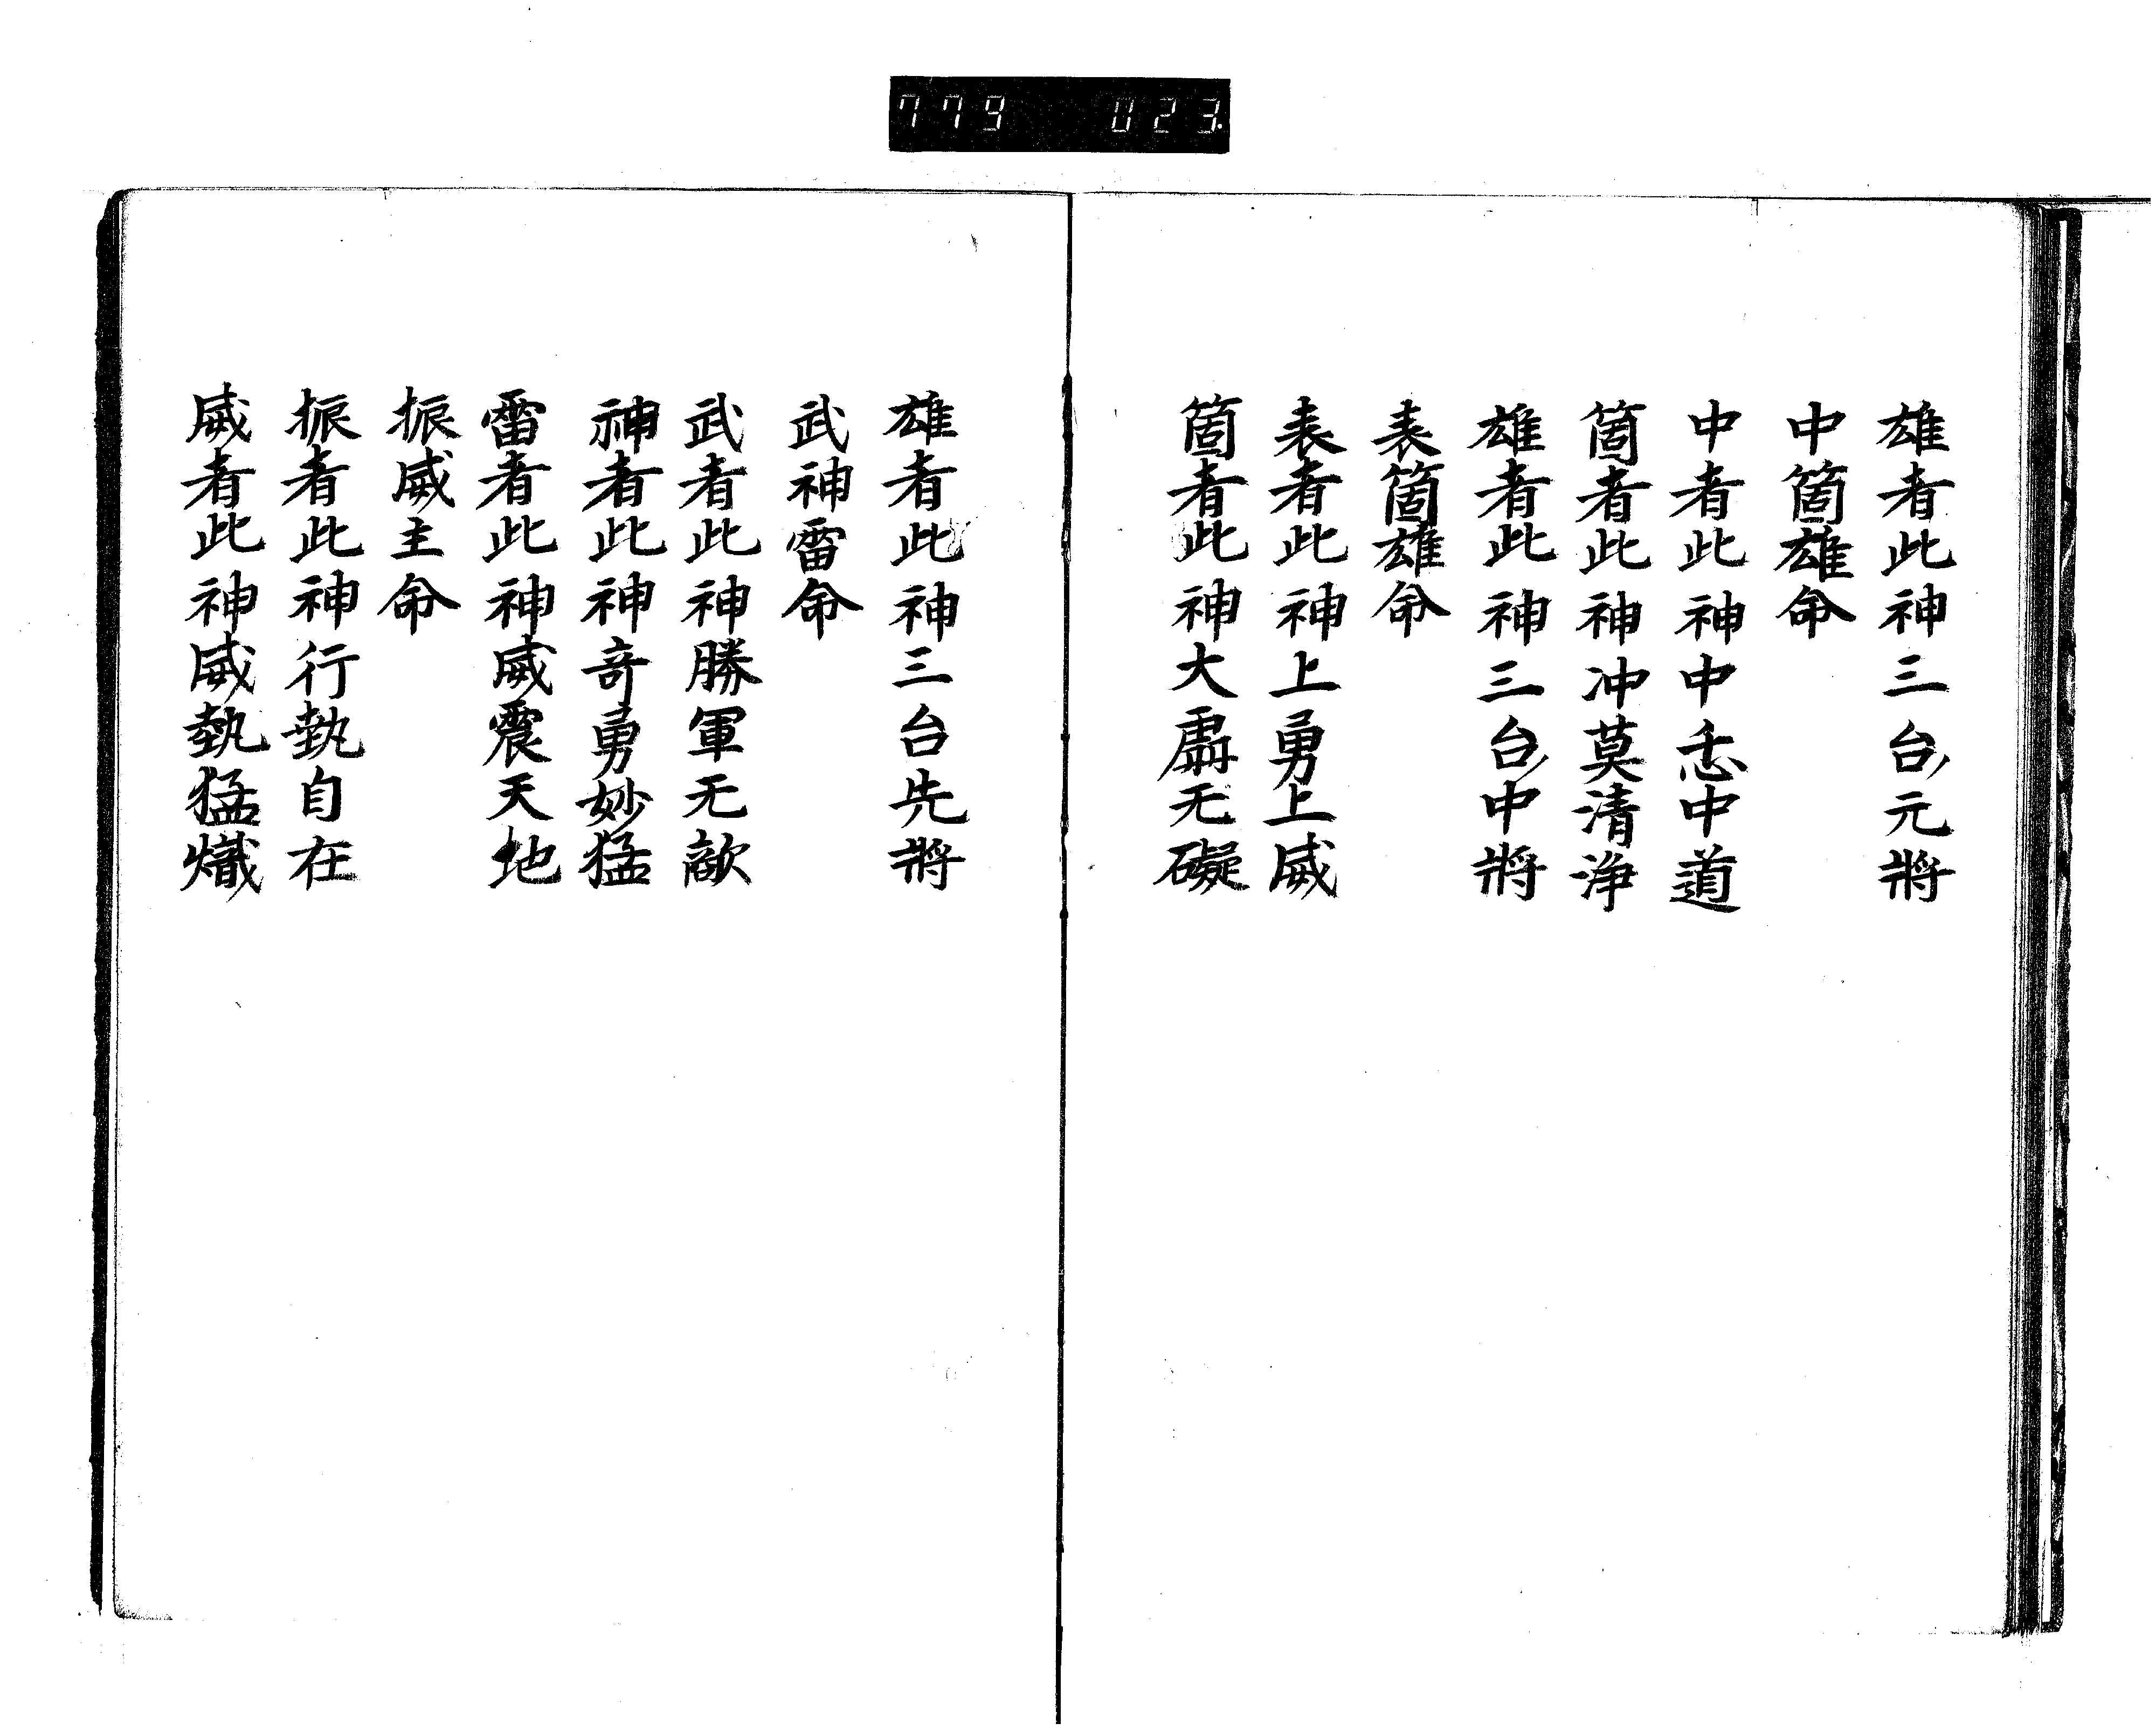 779 023.
雄者此神三台元將
中箇雄命
中者此神中𢗀中道
箇者此神冲莫清浄
雄者此神三台中將
表箇雄命
表者此神上勇上威
箇者此神大虚无礙
雄者此神三台先將
武神雷命
武者此神勝軍无敵
神者此神奇勇妙猛
雷者此神威震天地
振威主命
振者此神行執自在
威者此神威執猛熾